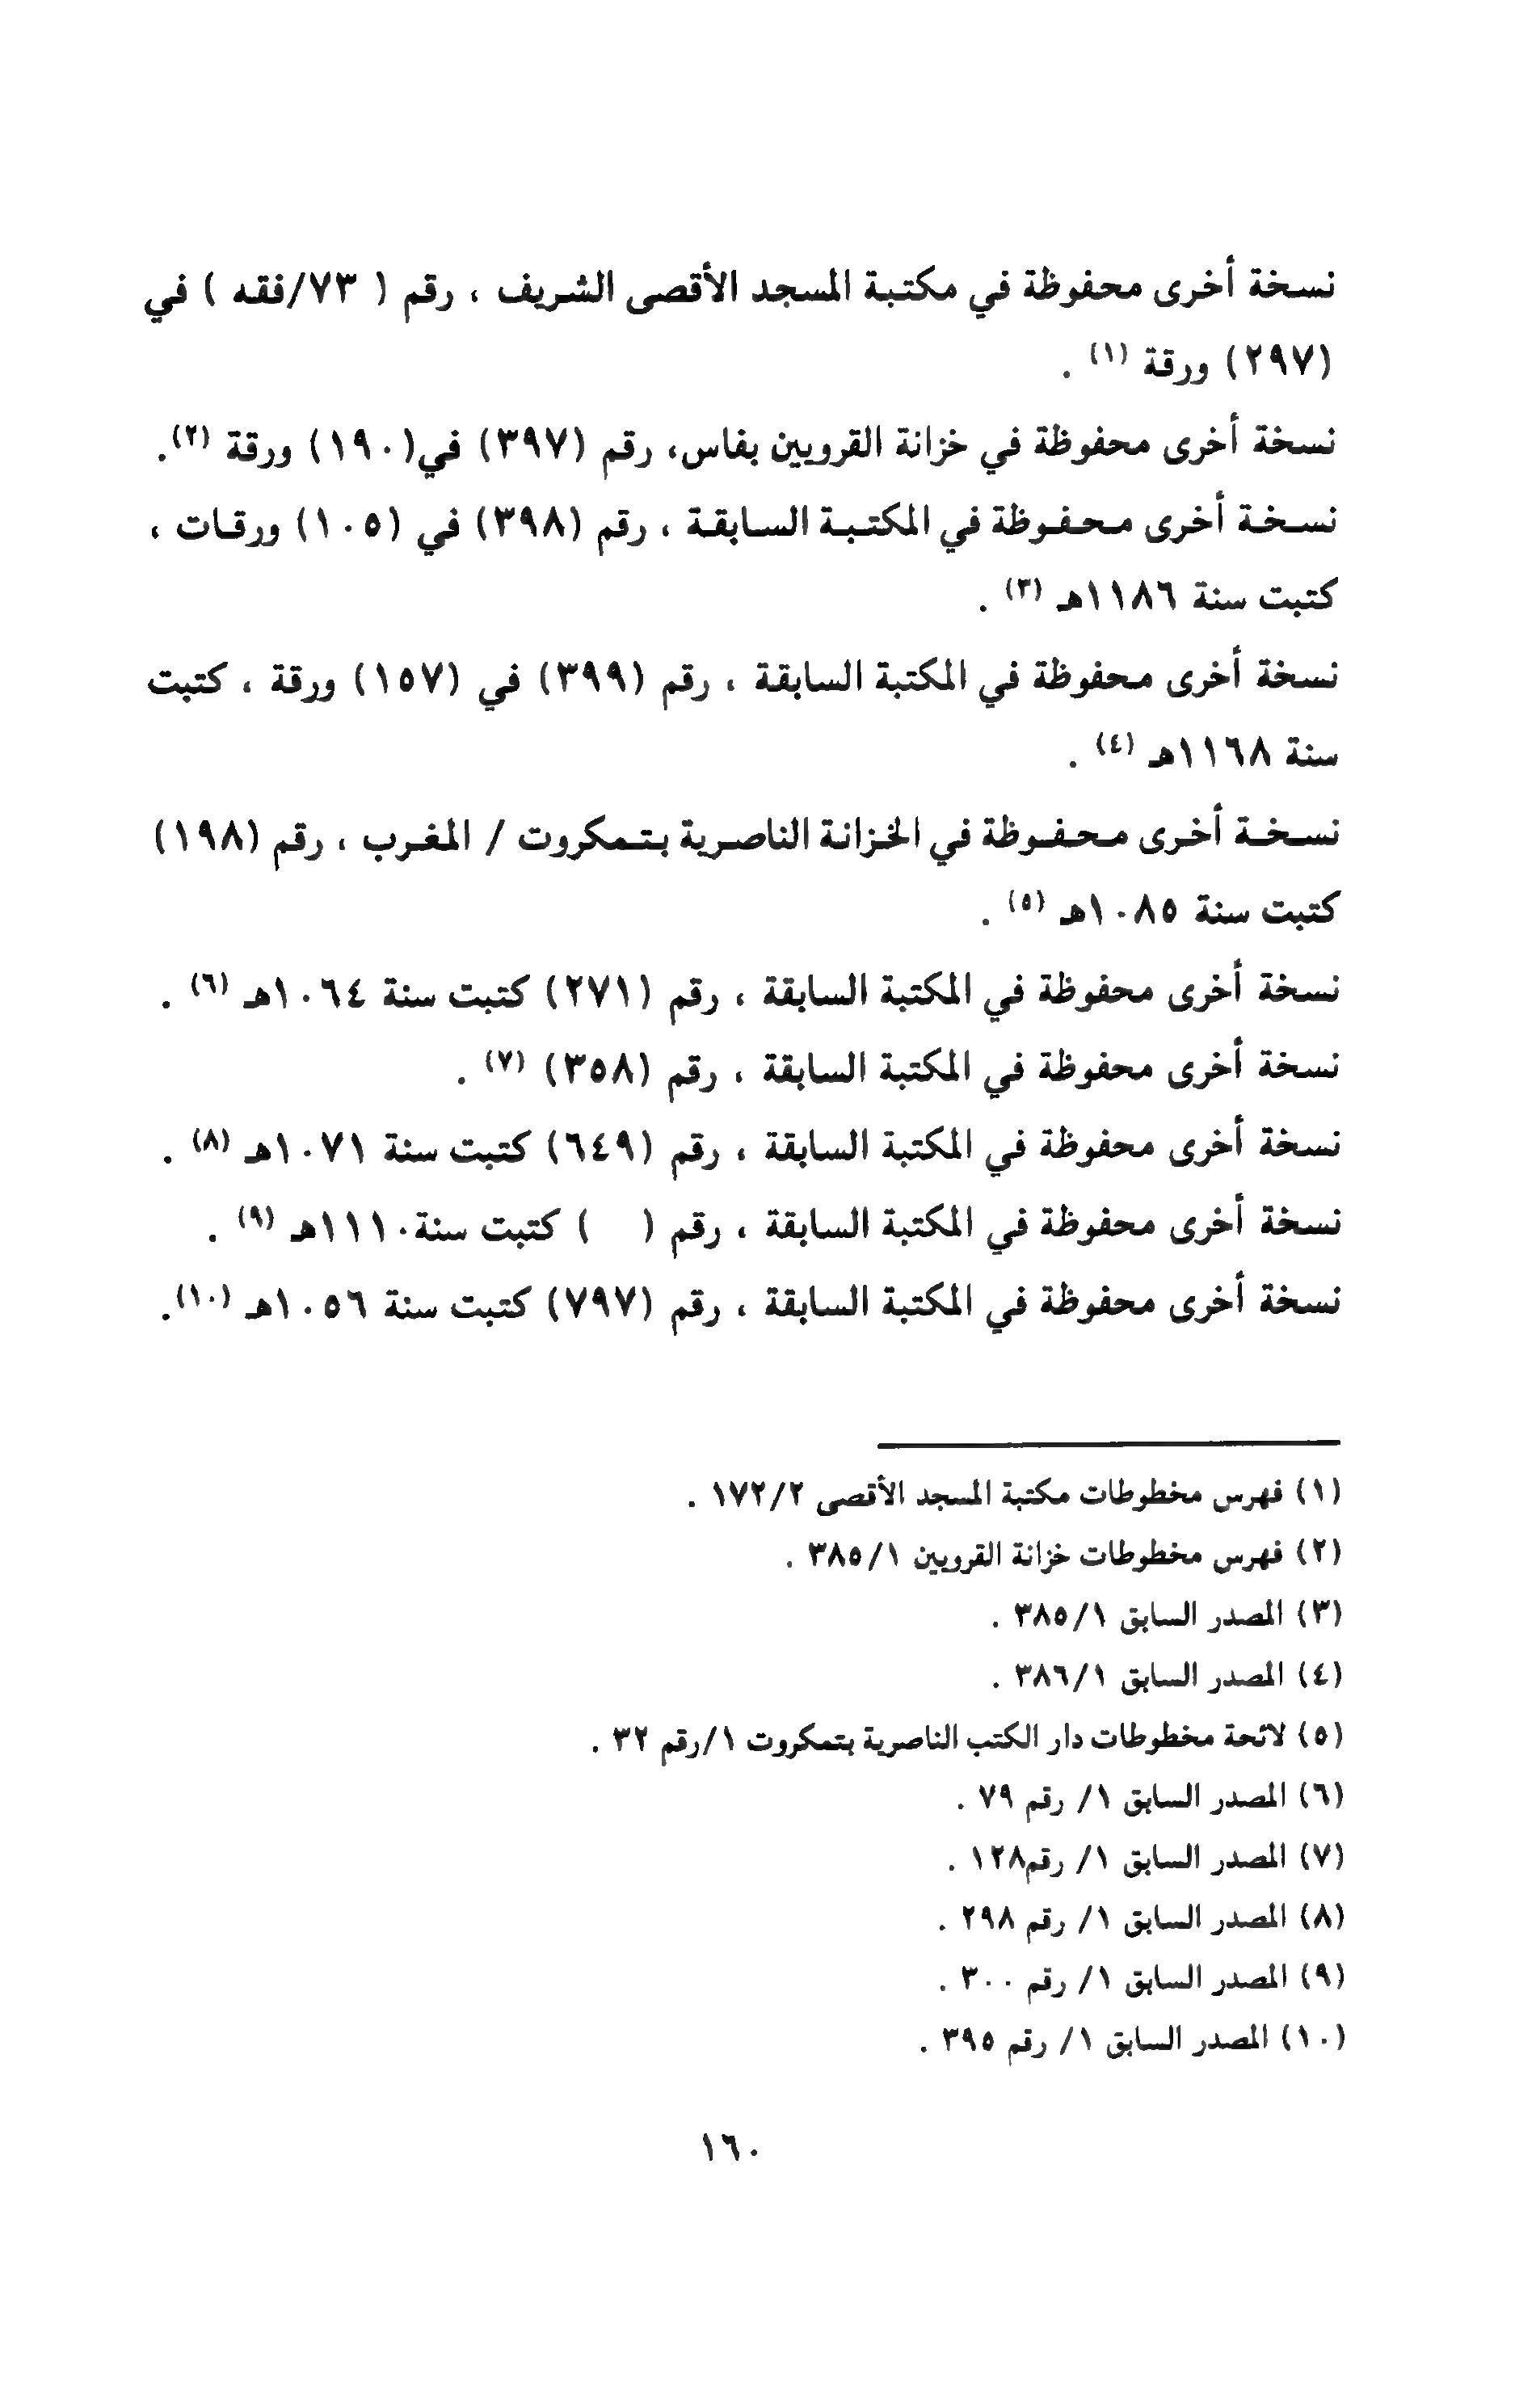 نسخة أخرى محفوظة في مكتبة المسجد الأقصى الشريف ، رقم ( ٧٣/فقه ) في
(٢٩٧) ورقة (١) .
نسخة أخرى محفوظة في خزانة القرويين بفاس، رقم (٣٩٧) في(١٩٠) ورقة (٢).
نسخة أخرى محفوظة في المكتبة السابقة ، رقم (٣٩٨) في (١٠٥) ورقات ،
كتبت سنة ١١٨٦هـ (٣) .
نسخة أخرى محفوظة في المكتبة السابقة ، رقم (٣٩٩) في (١٥٧) ورقة ، كتبت
سنة ١١٦٨هـ (٤) .
نسخة أخرى محفوظة في الخزانة الناصرية بتمكروت / المغرب ، رقم (١٩٨)
كتبت سنة ١٠٨٥هـ (٥) .
نسخة أخرى محفوظة في المكتبة السابقة ، رقم (٢٧١) كتبت سنة ١٠٦٤هـ (٦) .
نسخة أخرى محفوظة في المكتبة السابقة ، رقم (٣٥٨) (٧) .
نسخة أخرى محفوظة في المكتبة السابقة ، رقم (٦٤٩) كتبت سنة ١٠٧١هـ (٨) .
نسخة أخرى محفوظة في المكتبة السابقة ، رقم (   ) كتبت سنة١١١٠هـ (٩) .
نسخة أخرى محفوظة في المكتبة السابقة ، رقم (٧٩٧) كتبت سنة ١٠٥٦هـ (١٠).
(١) فهرس مخطوطات مكتبة المسجد الأقصى ١٧٢/٢ .
(٢) فهرس مخطوطات خزانة القرويين ٣٨٥/١ .
(٣) المصدر السابق ٣٨٥/١ .
(٤) المصدر السابق ٣٨٦/١ .
(٥) لائحة مخطوطات دار الكتب الناصرية بتمكروت ١/رقم ٣٢ .
(٦) المصدر السابق ١/ رقم ٧٩ .
(٧) المصدر السابق ١/ رقم١٢٨ .
(٨) المصدر السابق ١/ رقم ٢٩٨ .
(٩) المصدر السابق ١/ رقم ٣٠٠ .
(١٠) المصدر السابق ١/ رقم ٣٩٥ .
١٦٠